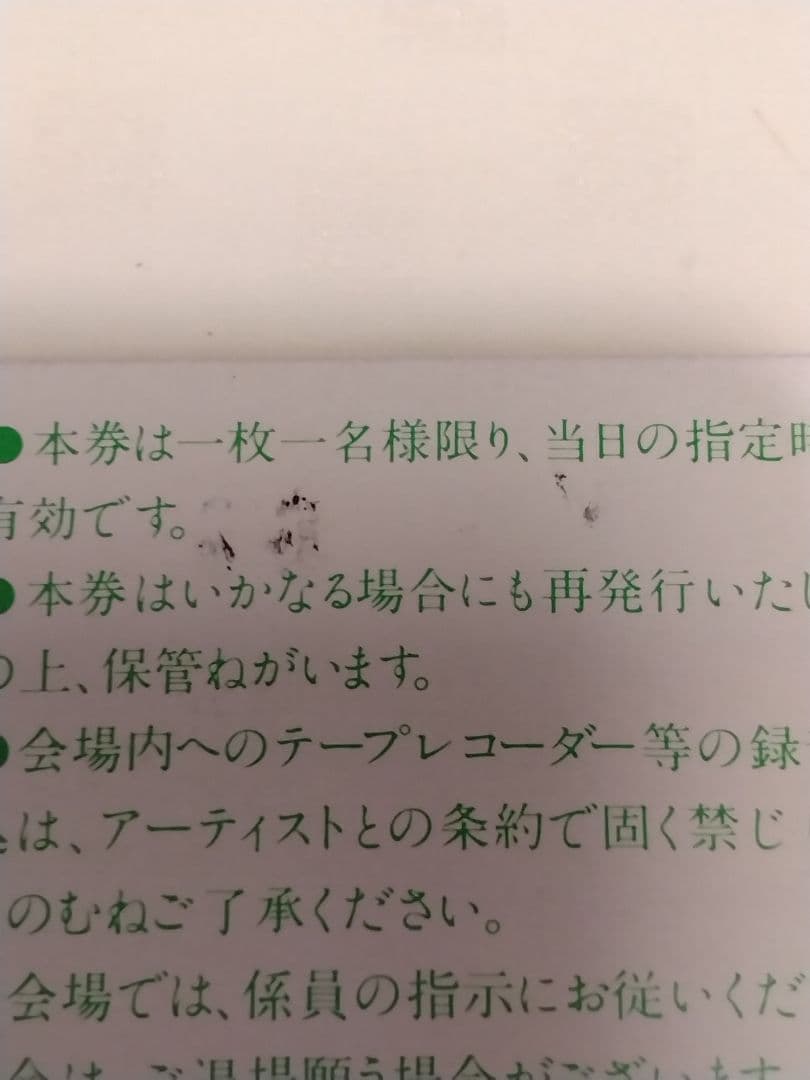 ●本券は一枚一名様限り、当日の指定時
有効です。
●本券はいかなる場合にも再発行いたし
の上、保管ねがいます。
●会場内へのテープレコーダー等の録
は、アーティストとの条約で固く禁じ
のむねご了承ください。
会場では、係員の指示にお従いくだ
合は、ご退場願う場合がございます